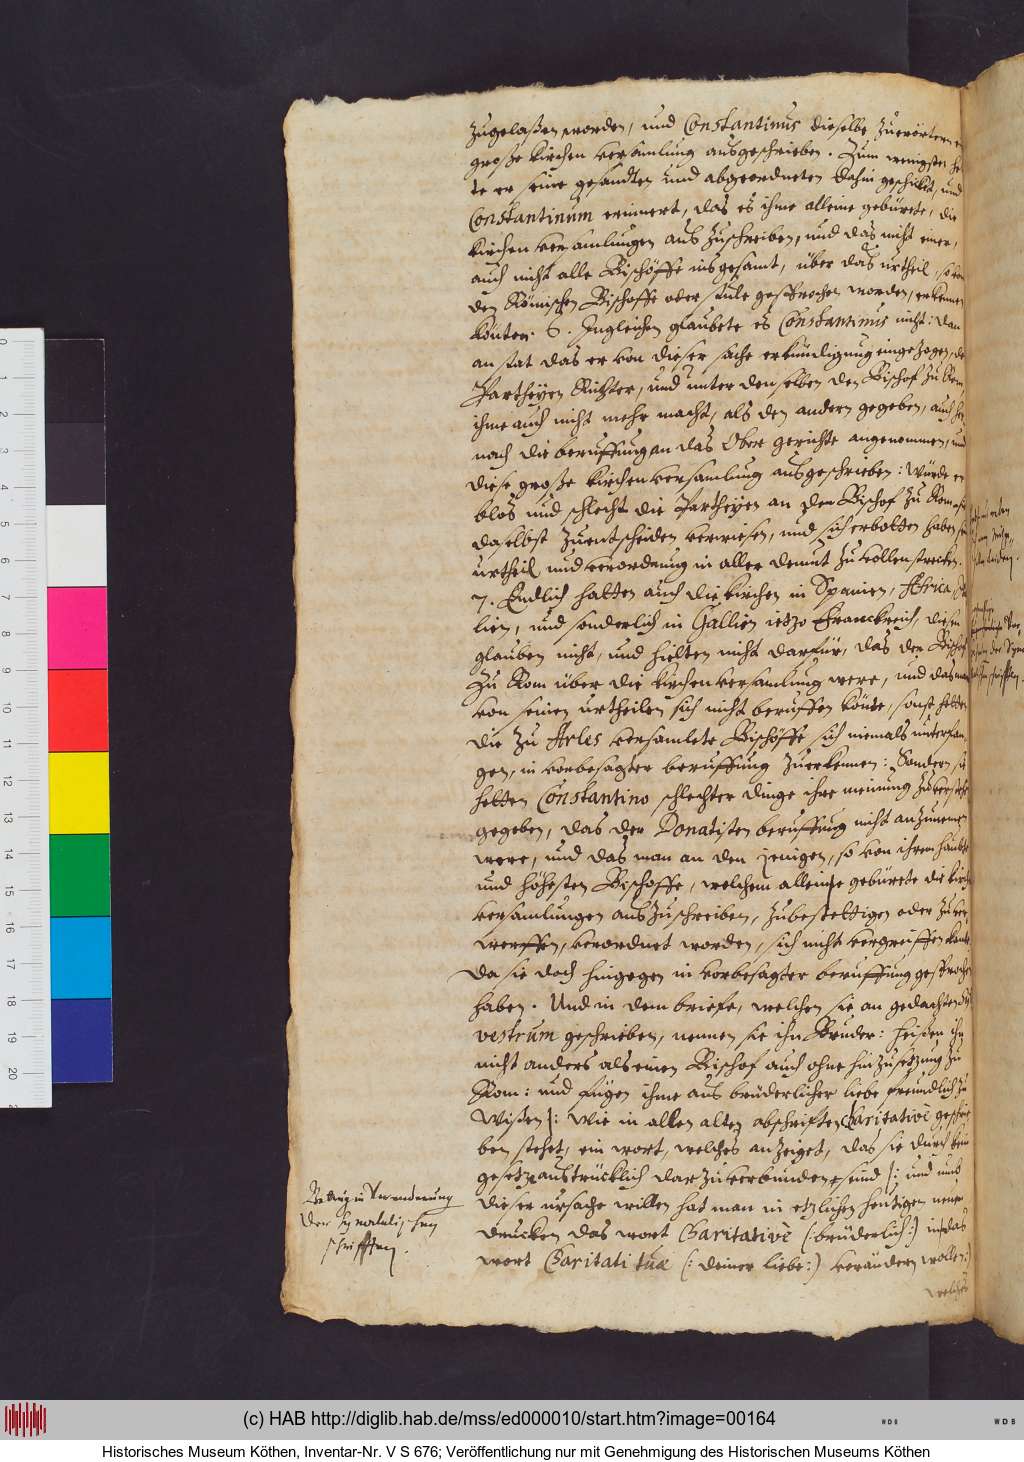 zugelaßen worden, und Constantinus dieselbe zuerörtern
große kirchen versamlung ausgeschrieben. Zum wenigsten
te er seine gesandten und abgeordneten dahin geschikt, und
Constantinum erinnert, das es ihme alleine gebürete, die
kirchen versamlungen aus zuschreiben, und das nicht einer,
auch nicht alle Bischöffe insgesamt, über das urtheil, so von
den Römischen Bischoffe oder stule gesprochen worden, erkennen
könten. 6. Ingleichen glaubete es Constantinus nicht: dan
an stat das er von dieser sache erkündigung eingezogen, den
Partheyen Richter, und unter denselben den Bischof zu Rom
ihme auch nicht mehr macht, als den andern gegeben, auch
nach die beruffung an das Obere gerichte angenommen, und
diese große kirchen versamlung ausgeschrieben: würde er
blos und schlecht die Partheyen an den Bischof zu Rom
daselbst zuentscheiden verwiesen, und sich erbotten haben
urtheil und verordnung in aller demut zu vollenstrecken.
7. Endlich hatten auch die kirchen in Spanien, Africa,
lien, und sonderlich in Gallien ietzo Franckreich, diesen
glauben nicht, und hielten nicht darfür, das der Bischof
zu Rom über die kirchen versamlung were, und das man
von seinen urtheilen sich nicht beruffen könte, sonst hetten
die zu Arles versamlete Bischöffe sich niemals unterfan,
gen, in vorbesagter beruffung zuerkennen: Sondern sie
hetten Constantino schlechter dinge ihre meinung zuverstehn
gegeben, das der Donatisten beruffung nicht anzunemen
were, und das man an den jenigen, so von ihrem haubte
und höhesten Bischoffe, welchem alleine gebürete die kirchen
versamlungen auszuschreiben, zubestettigen oder zuver,
werffen, verordnet worden, sich nicht vergreiffen könte
da sie doch hingegen in vorbesagter beruffung gesprochen
haben. Und in dem briefe, welchen sie an gedachten Syl
vestrum geschrieben, nennen sie ihn Bruder: heißen ihn
nicht anders als einen Bischof auch ohne hinzusetzung zu
Rom: und fügen ihme aus brüderlicher liebe freundlich zu
wißen /: wie in allen alten abschriften Charitativè geschrie
ben stehet, ein wort, welches anzeiget, das sie durch kein
gesetz austrücklich darzu verbunden seind /: und umb
dieser ursache willen hat man in etzlichen heutigen newen
drucken das wort Charitativè (: brüderlich :) in das
wort Charitati tuae (: deiner liebe :) verändern wollen :)
welches
Betrug in Veranderung
der synodalischen
schrifften.